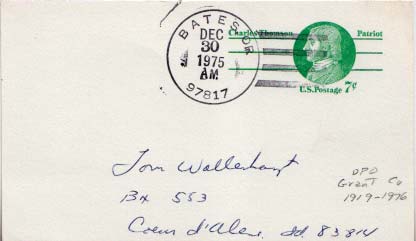 BATES, OR
DEC
30
1975
AM
97817
Charles Thomson Patriot
U.S. Postage 7¢
Tom Wallerhayt
Bx 553
Coeur d'Alene, Id. 83814
DPO
Grant Co
1919-1976